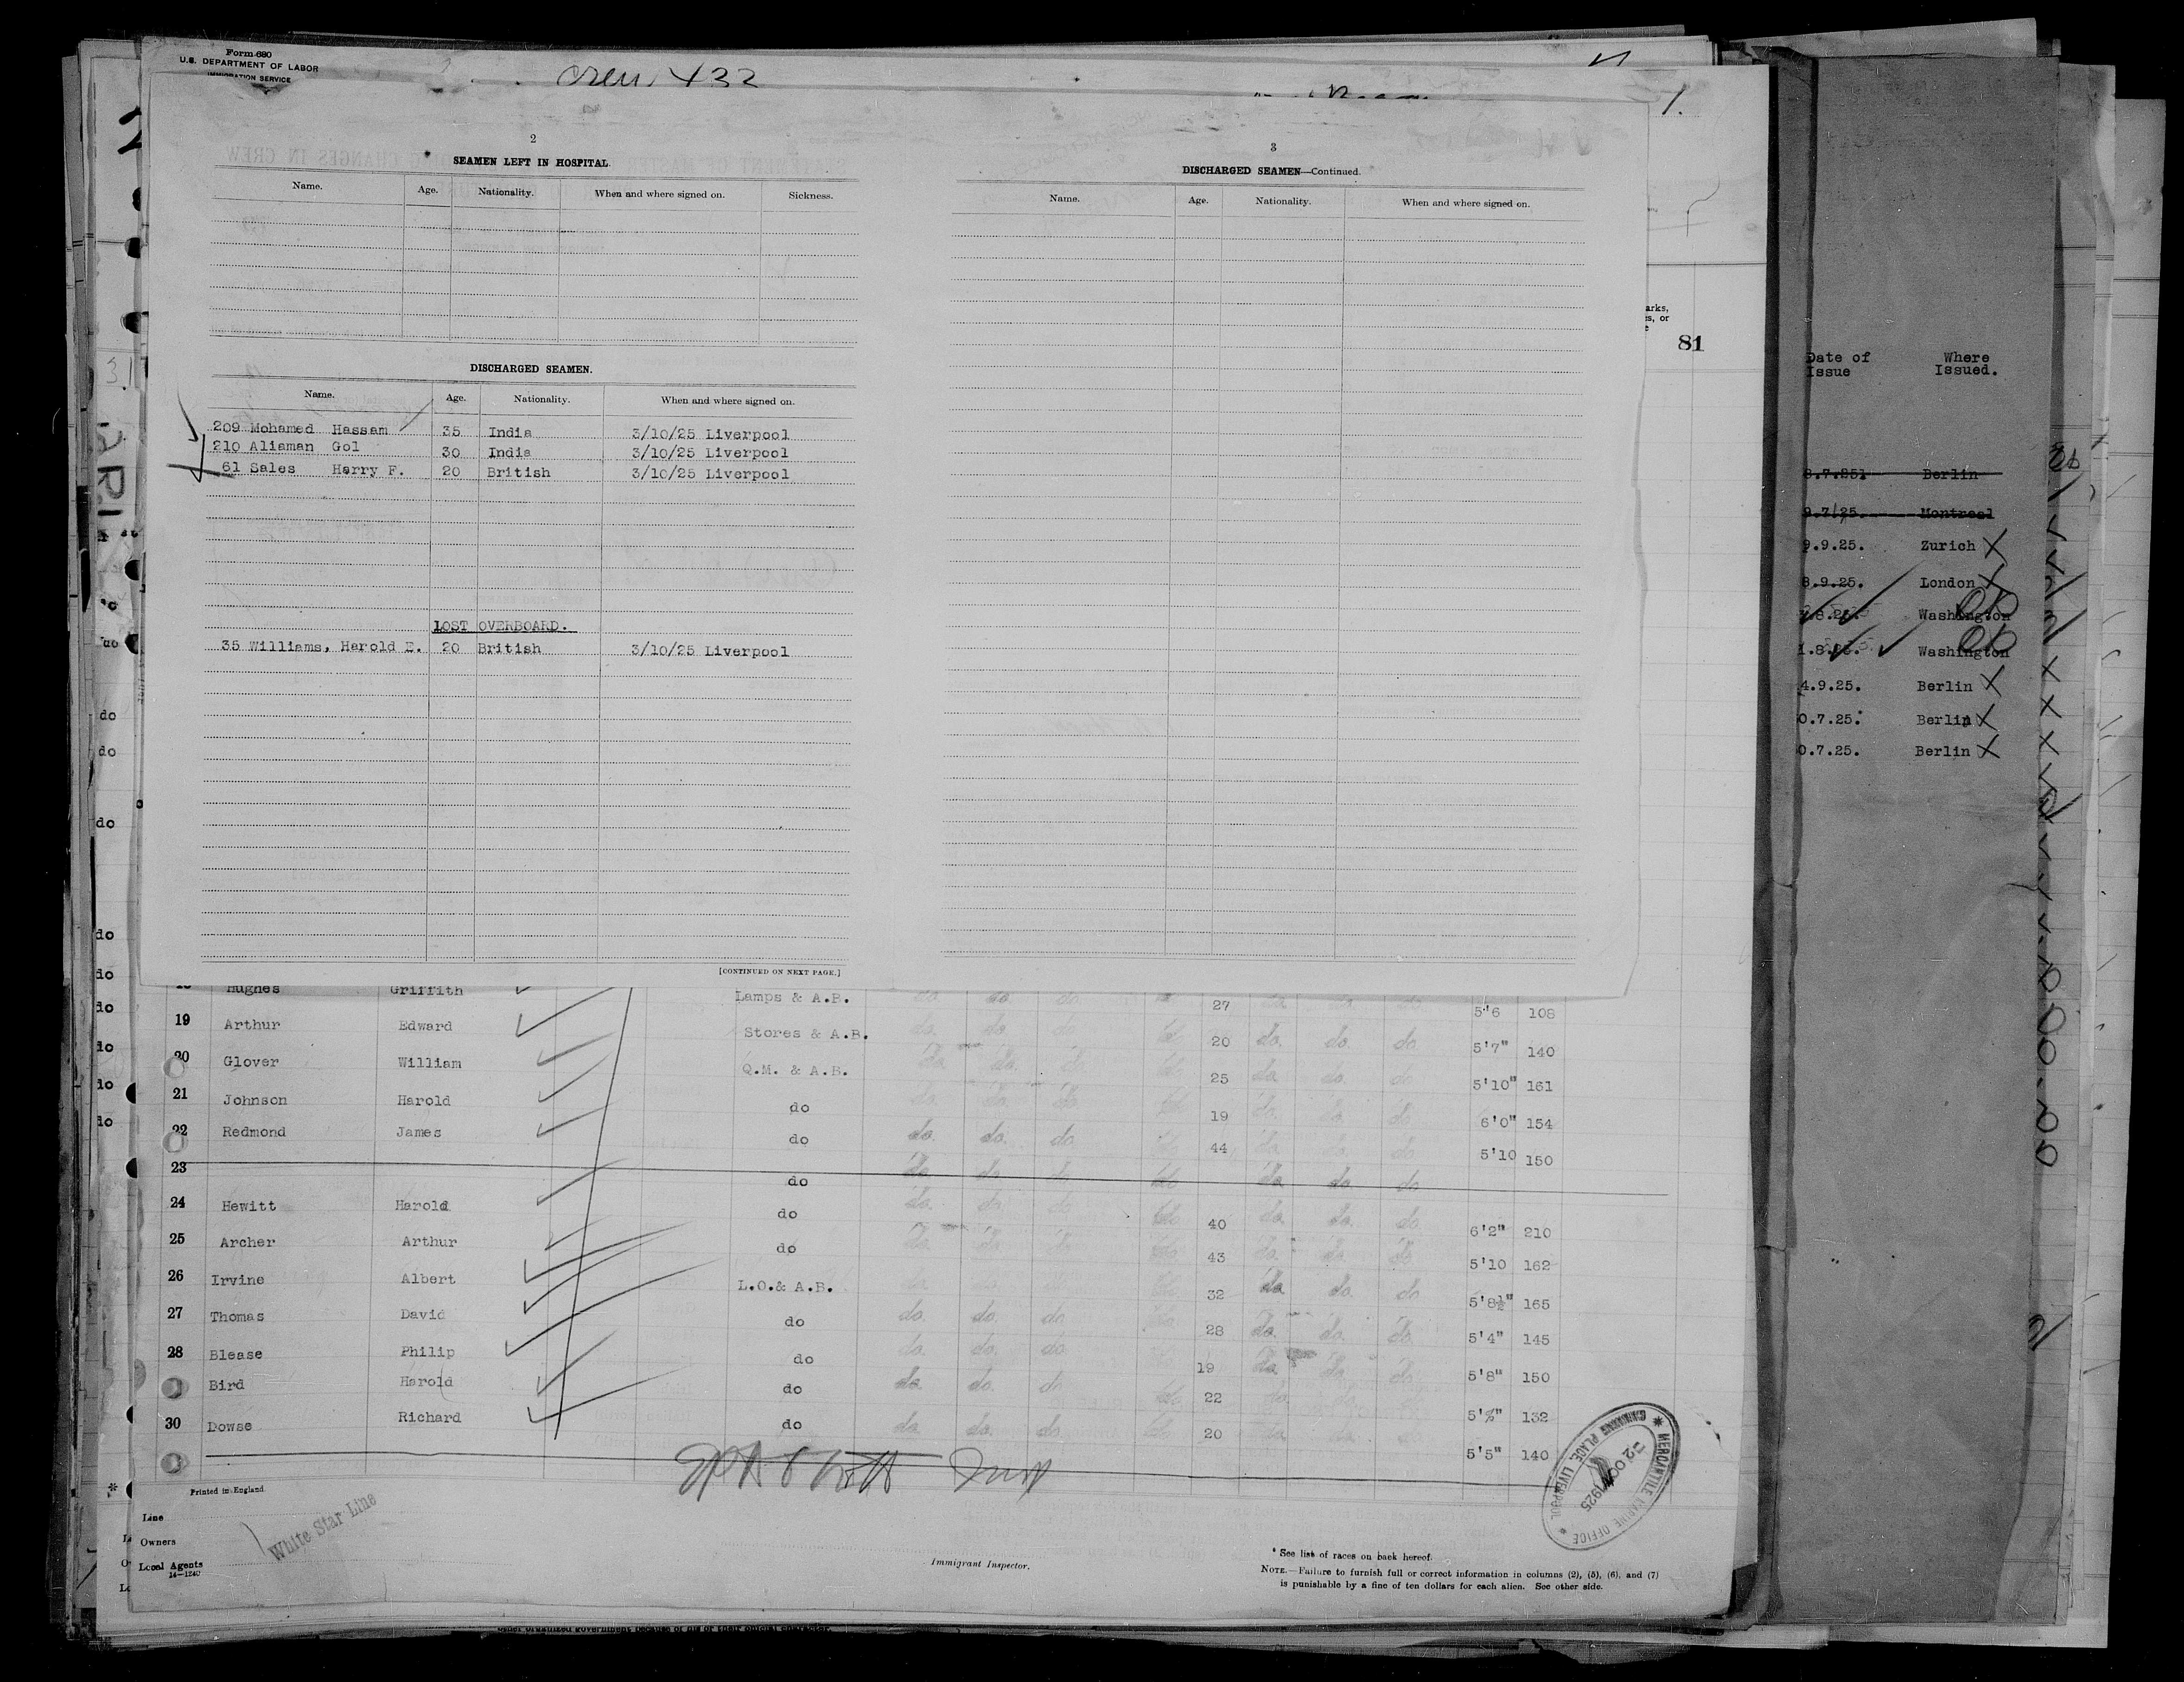 Form 680
U.S. DEPARTMENT OF LABOR
IMMIGRATION SERVICE
crew 432
1.
2
SEAMEN LEFT IN HOSPITAL.
Name. Age. Nationality. When and where signed on. Sickness.
DISCHARGED SEAMEN.
Name. Age. Nationality. When and where signed on.
209 Mohamed Hassam 35 India 3/10/25 Liverpool
210 Aliaman Gol 30 India 3/10/25 Liverpool
61 Sales Harry F. 20 British 3/10/25 Liverpool
LOST OVERBOARD.
35 Williams, Harold E. 20 British 3/10/25 Liverpool
[CONTINUED ON NEXT PAGE.]
3
DISCHARGED SEAMEN—Continued.
Name. Age. Nationality. When and where signed on.
81
Date of Issue Where Issued.
Berlin
9.7/25. Montreal
9.9.25. Zurich X
8.9.25. London X
Washington
Washington
4.9.25. Berlin X
0.7.25. Berlin X
0.7.25. Berlin X
Hughes Griffith Lamps & A.B. do. do. do. 27 do. do. do 5'6 108
19 Arthur Edward Stores & A.B. do. do. do 20 do. do. do 5'7" 140
20 Glover William Q.M. & A.B. do. do. do 25 do. do. do 5'10" 161
21 Johnson Harold do do. do. do 19 do. do. do 6'0" 154
22 Redmond James do do. do. do 44 do. do. do 5'10 150
23 do do. do. do do do. do. do
24 Hewitt Harold do do. do. do 40 do. do. do 6'2" 210
25 Archer Arthur do do. do. do 43 do. do. do 5'10 162
26 Irvine Albert L.O.& A.B. 32 do. do. do 5'8½" 165
27 Thomas David do do. do. do 28 do. do. do. 5'4" 145
28 Blease Philip do do. do. do 19 do. do. do 5'8" 150
Bird Harold do do. do. do 22 do. 132
30 Dowse Richard do do. do. do 20 5'5" 140
Printed in England
Line
Owners
Local Agents
14—1240
White Star Line
Immigrant Inspector.
* See list of races on back hereof.
NOTE.—Failure to furnish full or correct information in columns (2), (5), (6), and (7)
is punishable by a fine of ten dollars for each alien. See other side.
MERCANTILE MARINE OFFICE
CANNING PLACE, LIVERPOOL
-2 OCT 1925